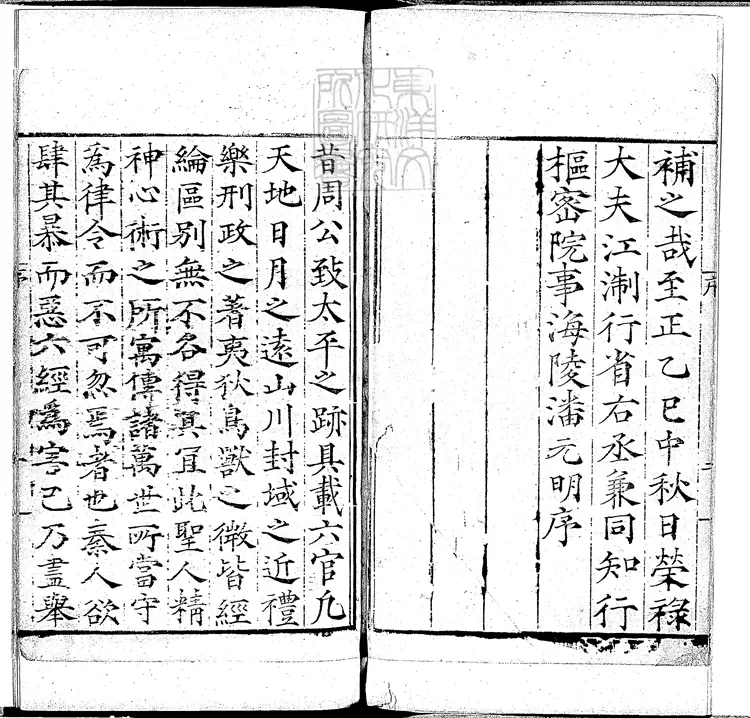 補之哉至正乙巳中秋日榮祿
大夫江淛行省右丞兼同知行
樞密院事海陵潘元明序
昔周公致太平之跡具載六官凡
天地日月之遠山川封域之近禮
樂刑政之著夷狄鳥獸之微皆經
綸區別無不各得其冝此聖人精
神心術之所寓傳諸萬世所當守
爲律令而不可忽焉者也秦人欲
肆其暴而惡六經爲害己乃盡舉
序